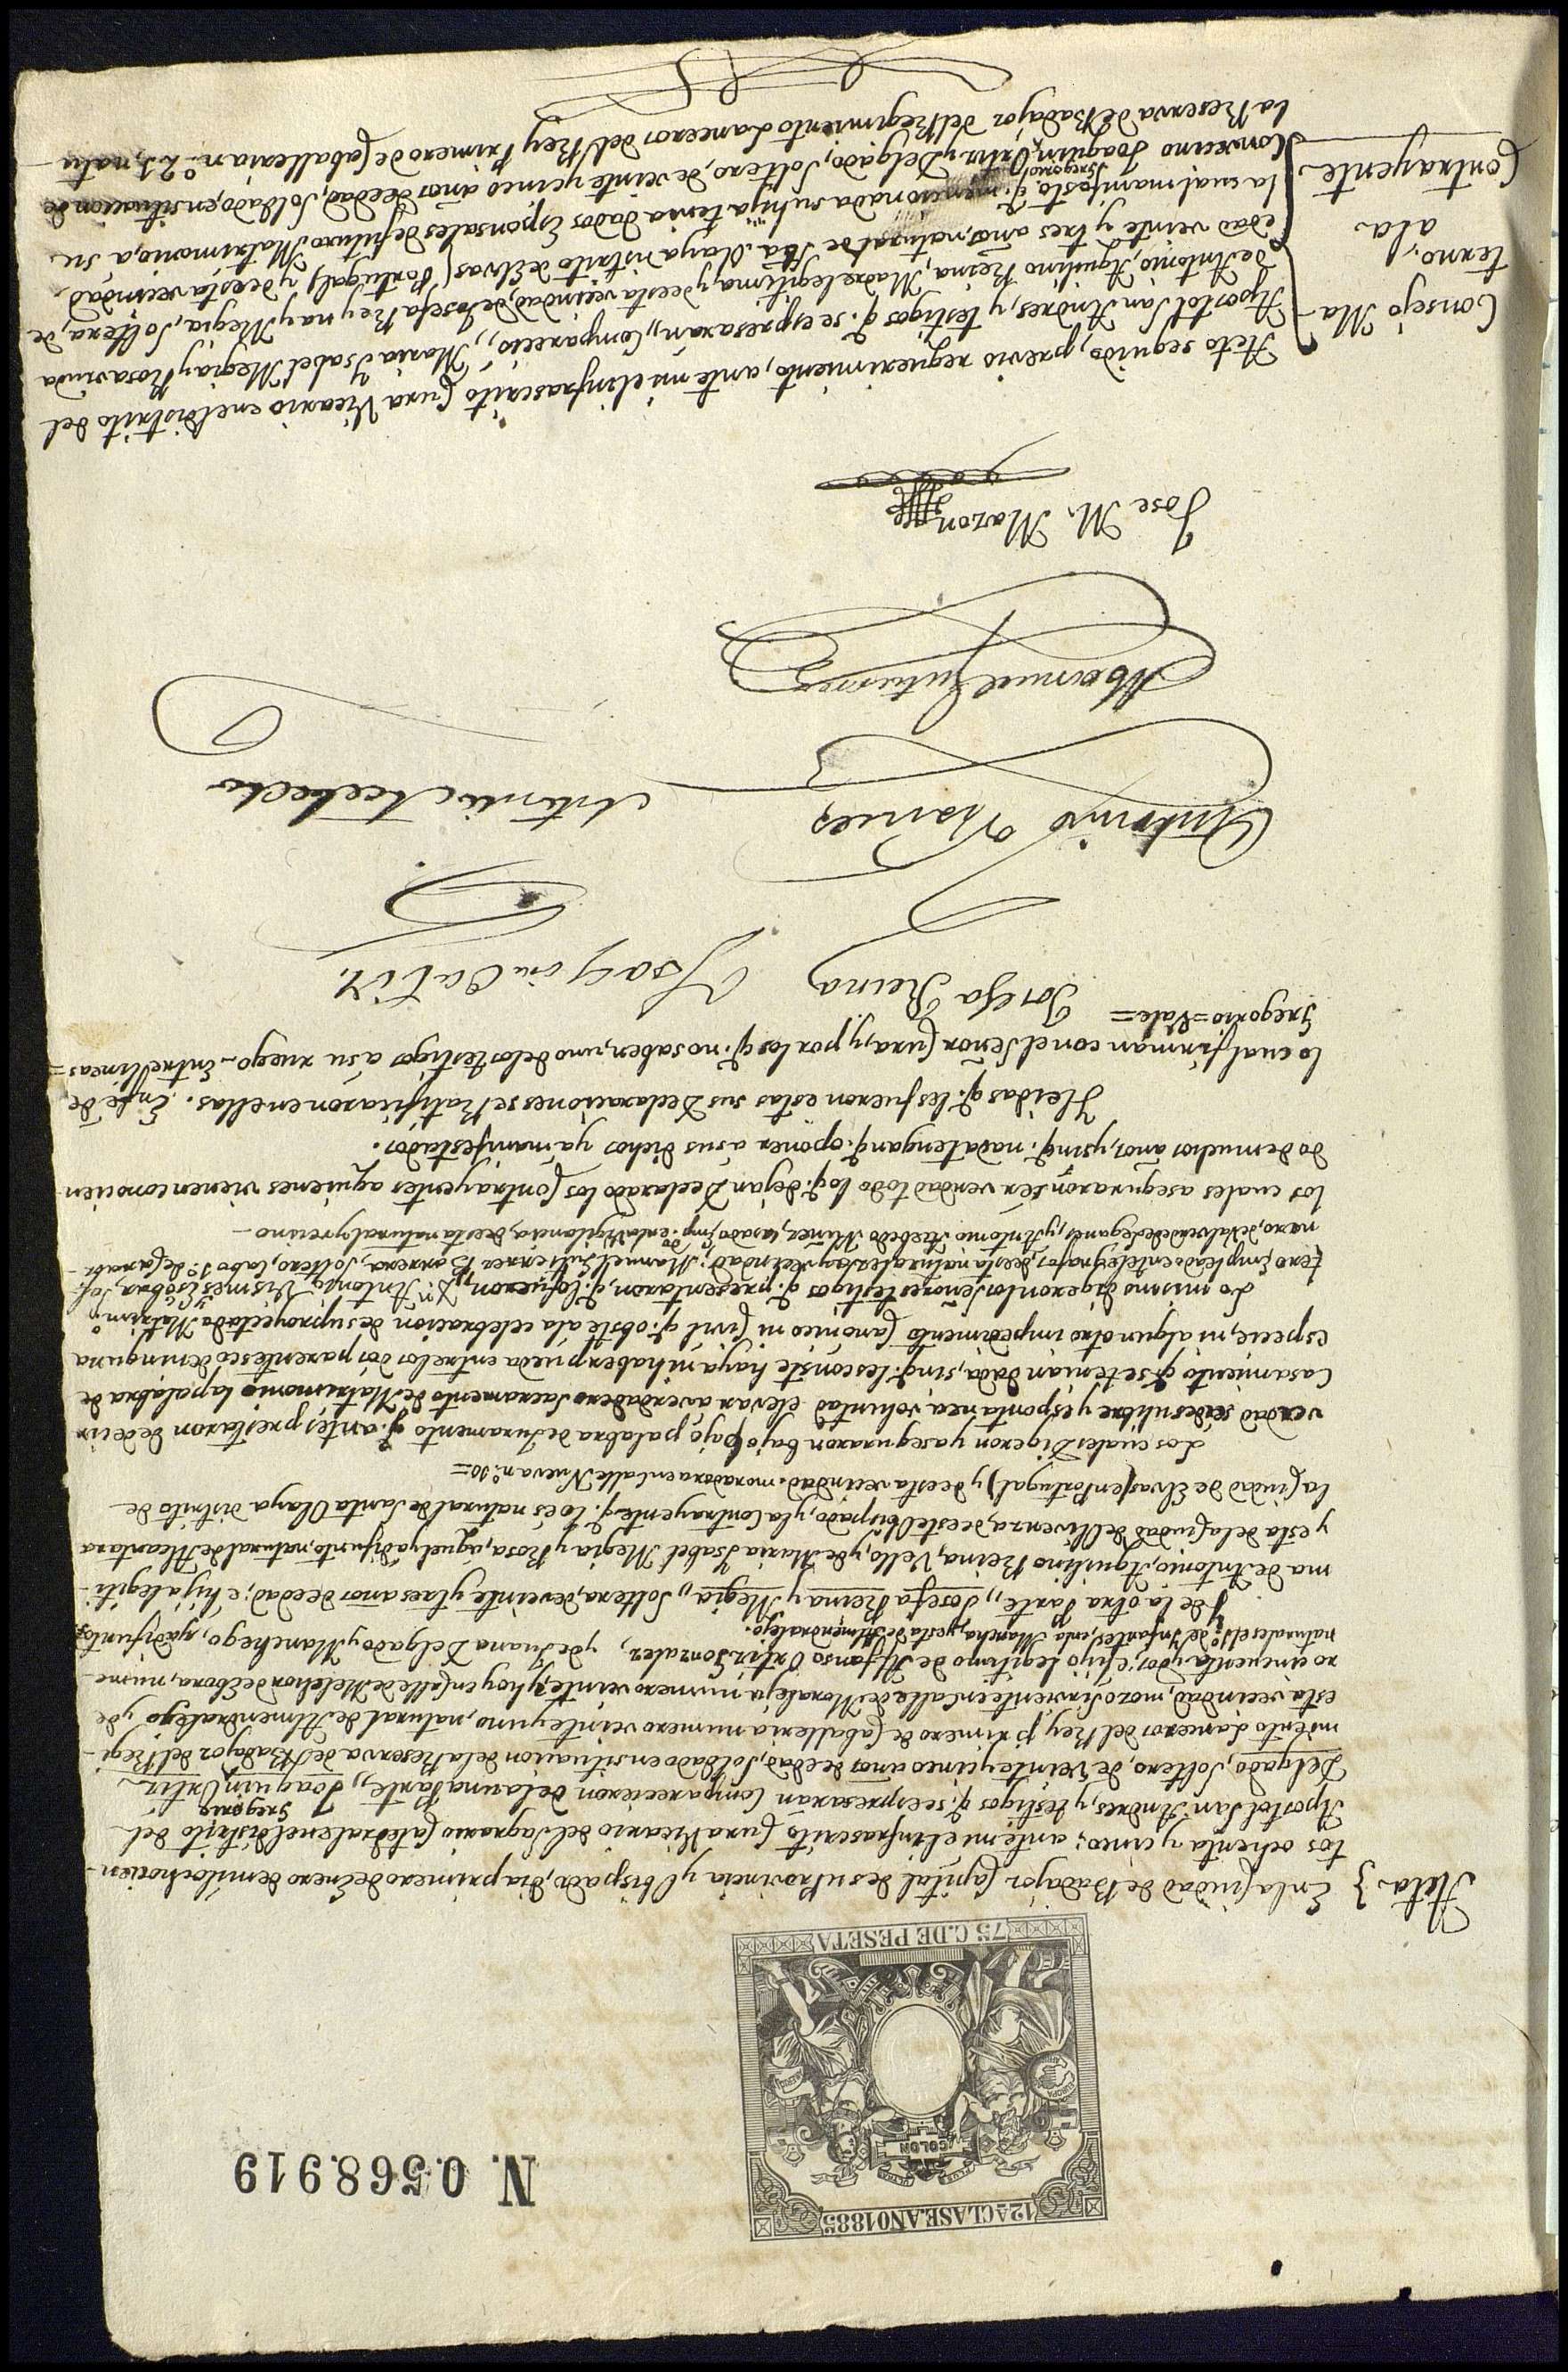 12ª CLASE. AÑO 1885
PLUS ULTRA
COLON
N. 0.568.919
75 C. DE PESETA
Acta } En la Ciudad de Badajoz Capital de su Provincia y Obispado, dia primero de Enero de mil ochocien-
tos ochenta y cinco; ante mi el infrascrito Cura Vicario del Sagrario Catedral en el distrito del
Apostol San Andres, y testigos q. se espresaran Comparecieron de la una Parte,, Joaquin Gregorio Ortiz
Delgado, Soltero, de veinte y cinco años de edad, Soldado en situacion de la Reserva de Badajoz del Regi-
miento Lanceros del Rey primero de Caballeria numero veinte y uno, natural de Almendralejo y de
esta vecindad, mozo sirviente en Calle de Moraleja numero veinte y hoy en Calle de Melchor de Evora, nume-
ro cincuenta y dos; é hijo legitimo de Alfonso Ortiz Gonzalez, y de Juana Delgado y Manchego, ya difuntos
naturales el 1º de Infantes, en la Mancha, y esta de Almendralejo.
Y de la otra Parte,, Josefa Reina y Megia,, Soltera, de veinte y tres años de edad; é hija legiti-
ma de Antonio, Aquilino Reina, Vello, y de Maria Isabel Megia y Rosa, aquel ya difunto, natural de Alcantara
y esta de la Ciudad de Olivenza, de este Obispado, y la Contrayente q. lo és natural de Santa Olaya distrito de
la Ciudad de Elvas (en Portugal) y de esta vecindad, moradora en Calle Nueva nº 10=
Los cuales Digeron y aseguraron bajo bajo palabra de Juramento q. antes prestaron de decir
verdad ser de su libre y espontanea voluntad elevar a verdadero Sacramento de Matrimonio la palabra de
Casamiento q. se tenian dada, sin q. les conste haya ni haber pueda entre los dos parentesco de ninguna
especie, ni algun otro impedimento Canónico ni Civil q. obste á la celebracion de su proyectado Matrimº
Lo mismo digeron los Señores testigos q. presentaron, q. lo fueron,, Dn. Antonio Vismes y Cobos, Sol-
tero, empleado en telégrafos, de esta naturaleza y vecindad; Manuel Gutierrez Barrena, Soltero, Cabo 1º de Carabi-
neros, de Valverde de Leganés, y Antonio Acebedo Nuñez, casado, empdo. en la Vigilancia, de esta natural y vecino-
los cuales aseguraron sér verdad todo lo q. dejan Declarado los Contrayentes a quienes vienen conocien-
do de muchos años, y sin q. nada tengan q. oponer á sus dichos ya manifestados.
Heidas q. les fueron estas sus Declaraciones se Ratificaron en ellas. En fé de
lo cual firman con el Señor Cura, y por los q. no saben, uno de los testigos á su ruego - Entre lineas =
Gregorio = Vale =
Josefa Reina
Joaquin Ortiz
Antonio Vismes
Antonio Acebedo
Manuel Gutierrez
Jose M. Mazon
Consejo Ma-
terno,
a la
Contrayente
Acto seguido, previo requerimiento, ante mi el infrascrito Cura Vicario en el distrito del
Apostol San Andres, y testigos q. se espresaran,, Comparecio,, Maria Isabel Megia y Rosa viuda
de Antonio, Aquilino Reina, Madre legitima, y de esta vecindad, de Josefa Reyna y Megia, Soltera, de
edad veinte y tres años, natural de Sta. Olaya distrito de Elvas (Portugal) y de esta vecindad,
la cual manifestó q. mencionada su hija tenia dados Esponsales de futuro Matrimonio, a su
Convecino Joaquin Gregorio Ortiz y Delgado, Soltero, de veinte y cinco años de edad, Soldado, en situacion de
la Reserva de Badajoz del Regimiento Lanceros del Rey Primero de Caballeria nº 21, natu-